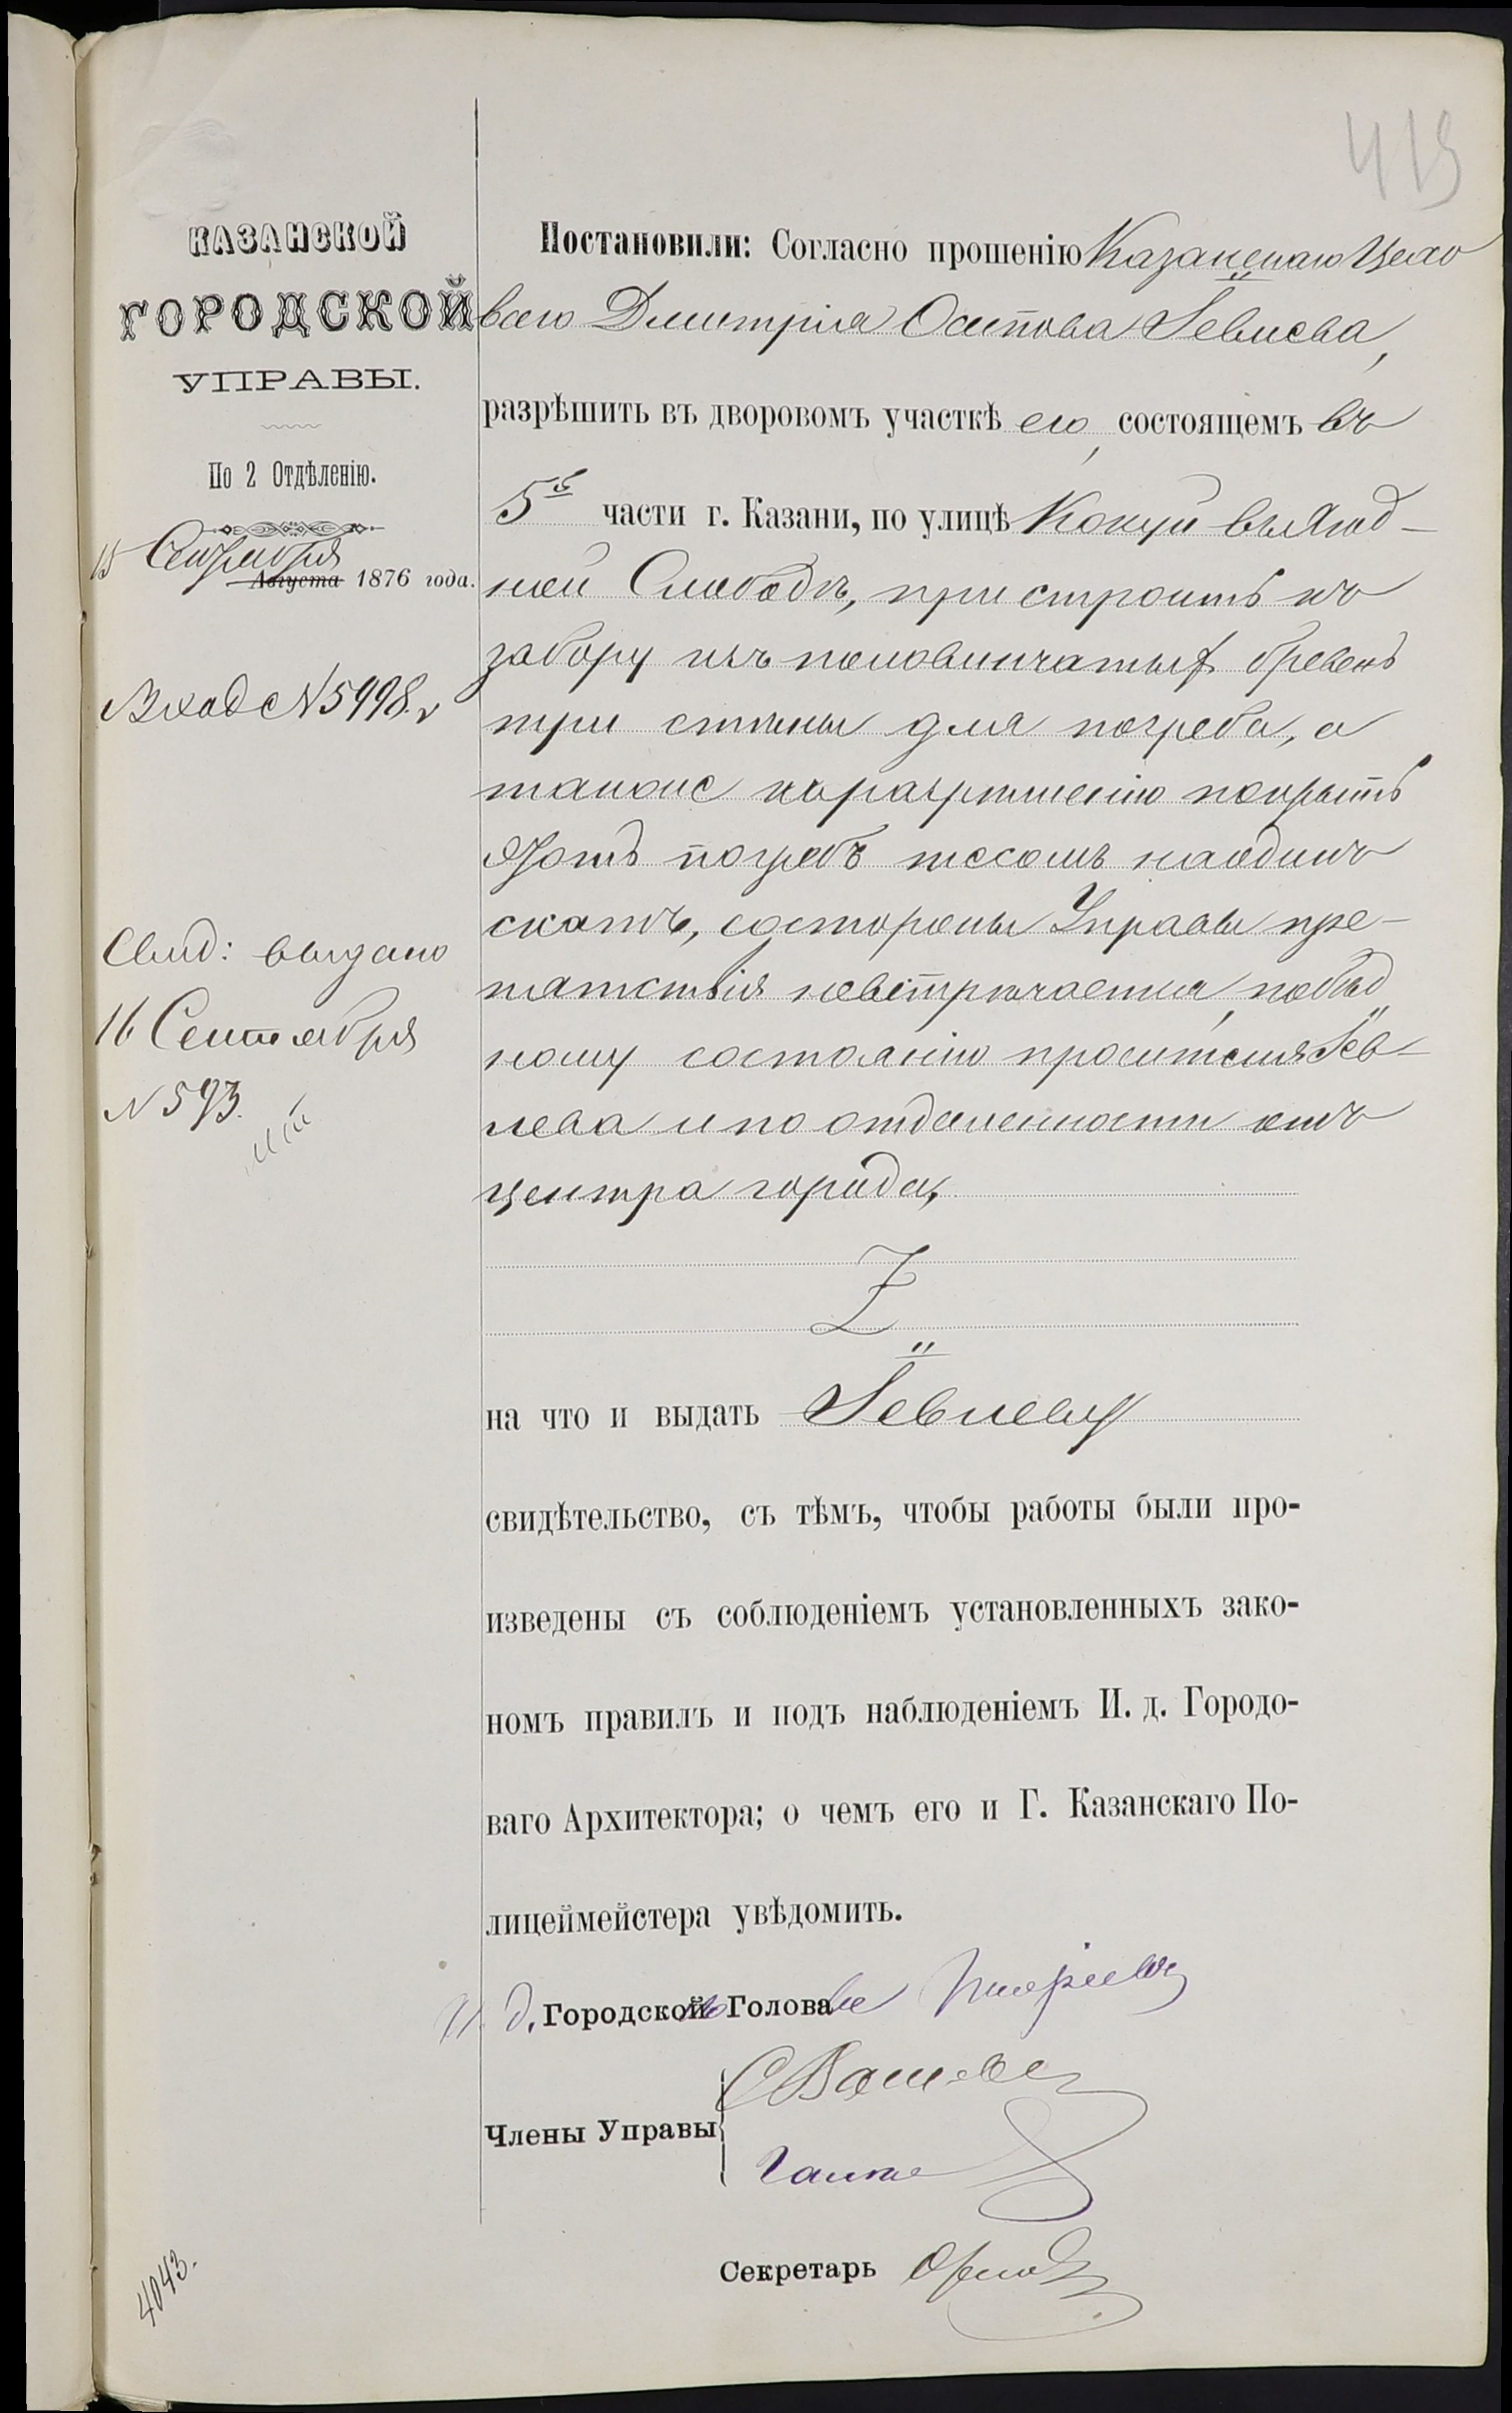 419
КАЗАНСКОЙ
ГОРОДСКОЙ
УПРАВЫ.
По 2 Отдѣленію.
15 Сентября
Августа 1876 года.
Вход № 5998.
Свид: выдано
16 Сентября
№ 593.
Постановили: Согласно прошенію Казанскаго Цехо
ваго Димитрія Осипова Іевлева,
разрѣшить въ дворовомъ участкѣ его, состоящемъ въ
5й части г. Казани, по улицѣ Кокуй въ Ягод-
ной Слободѣ, пристроить къ
забору изъ половинчатых бревенъ
три стѣны для погреба, а
также къ разрѣшенію покрыть
этотъ погребъ тесомъ на одинъ
скатъ, со стороны Управы пре-
пятствія не встрѣчается, по бѣд
ному состоянію просителя Іев-
лева и по отдаленности отъ
центра города,
Z
на что и выдать Іевлеву
свидѣтельство, съ тѣмъ, чтобы работы были про-
изведены съ соблюденіемъ установленныхъ зако-
номъ правилъ и подъ наблюденіемъ И. д. Городо-
ваго Архитектора; о чемъ его и Г. Казанскаго По-
лицеймейстера увѣдомить.
И. д. Городской Голова
Члены Управы
Секретарь Орлов
4043.